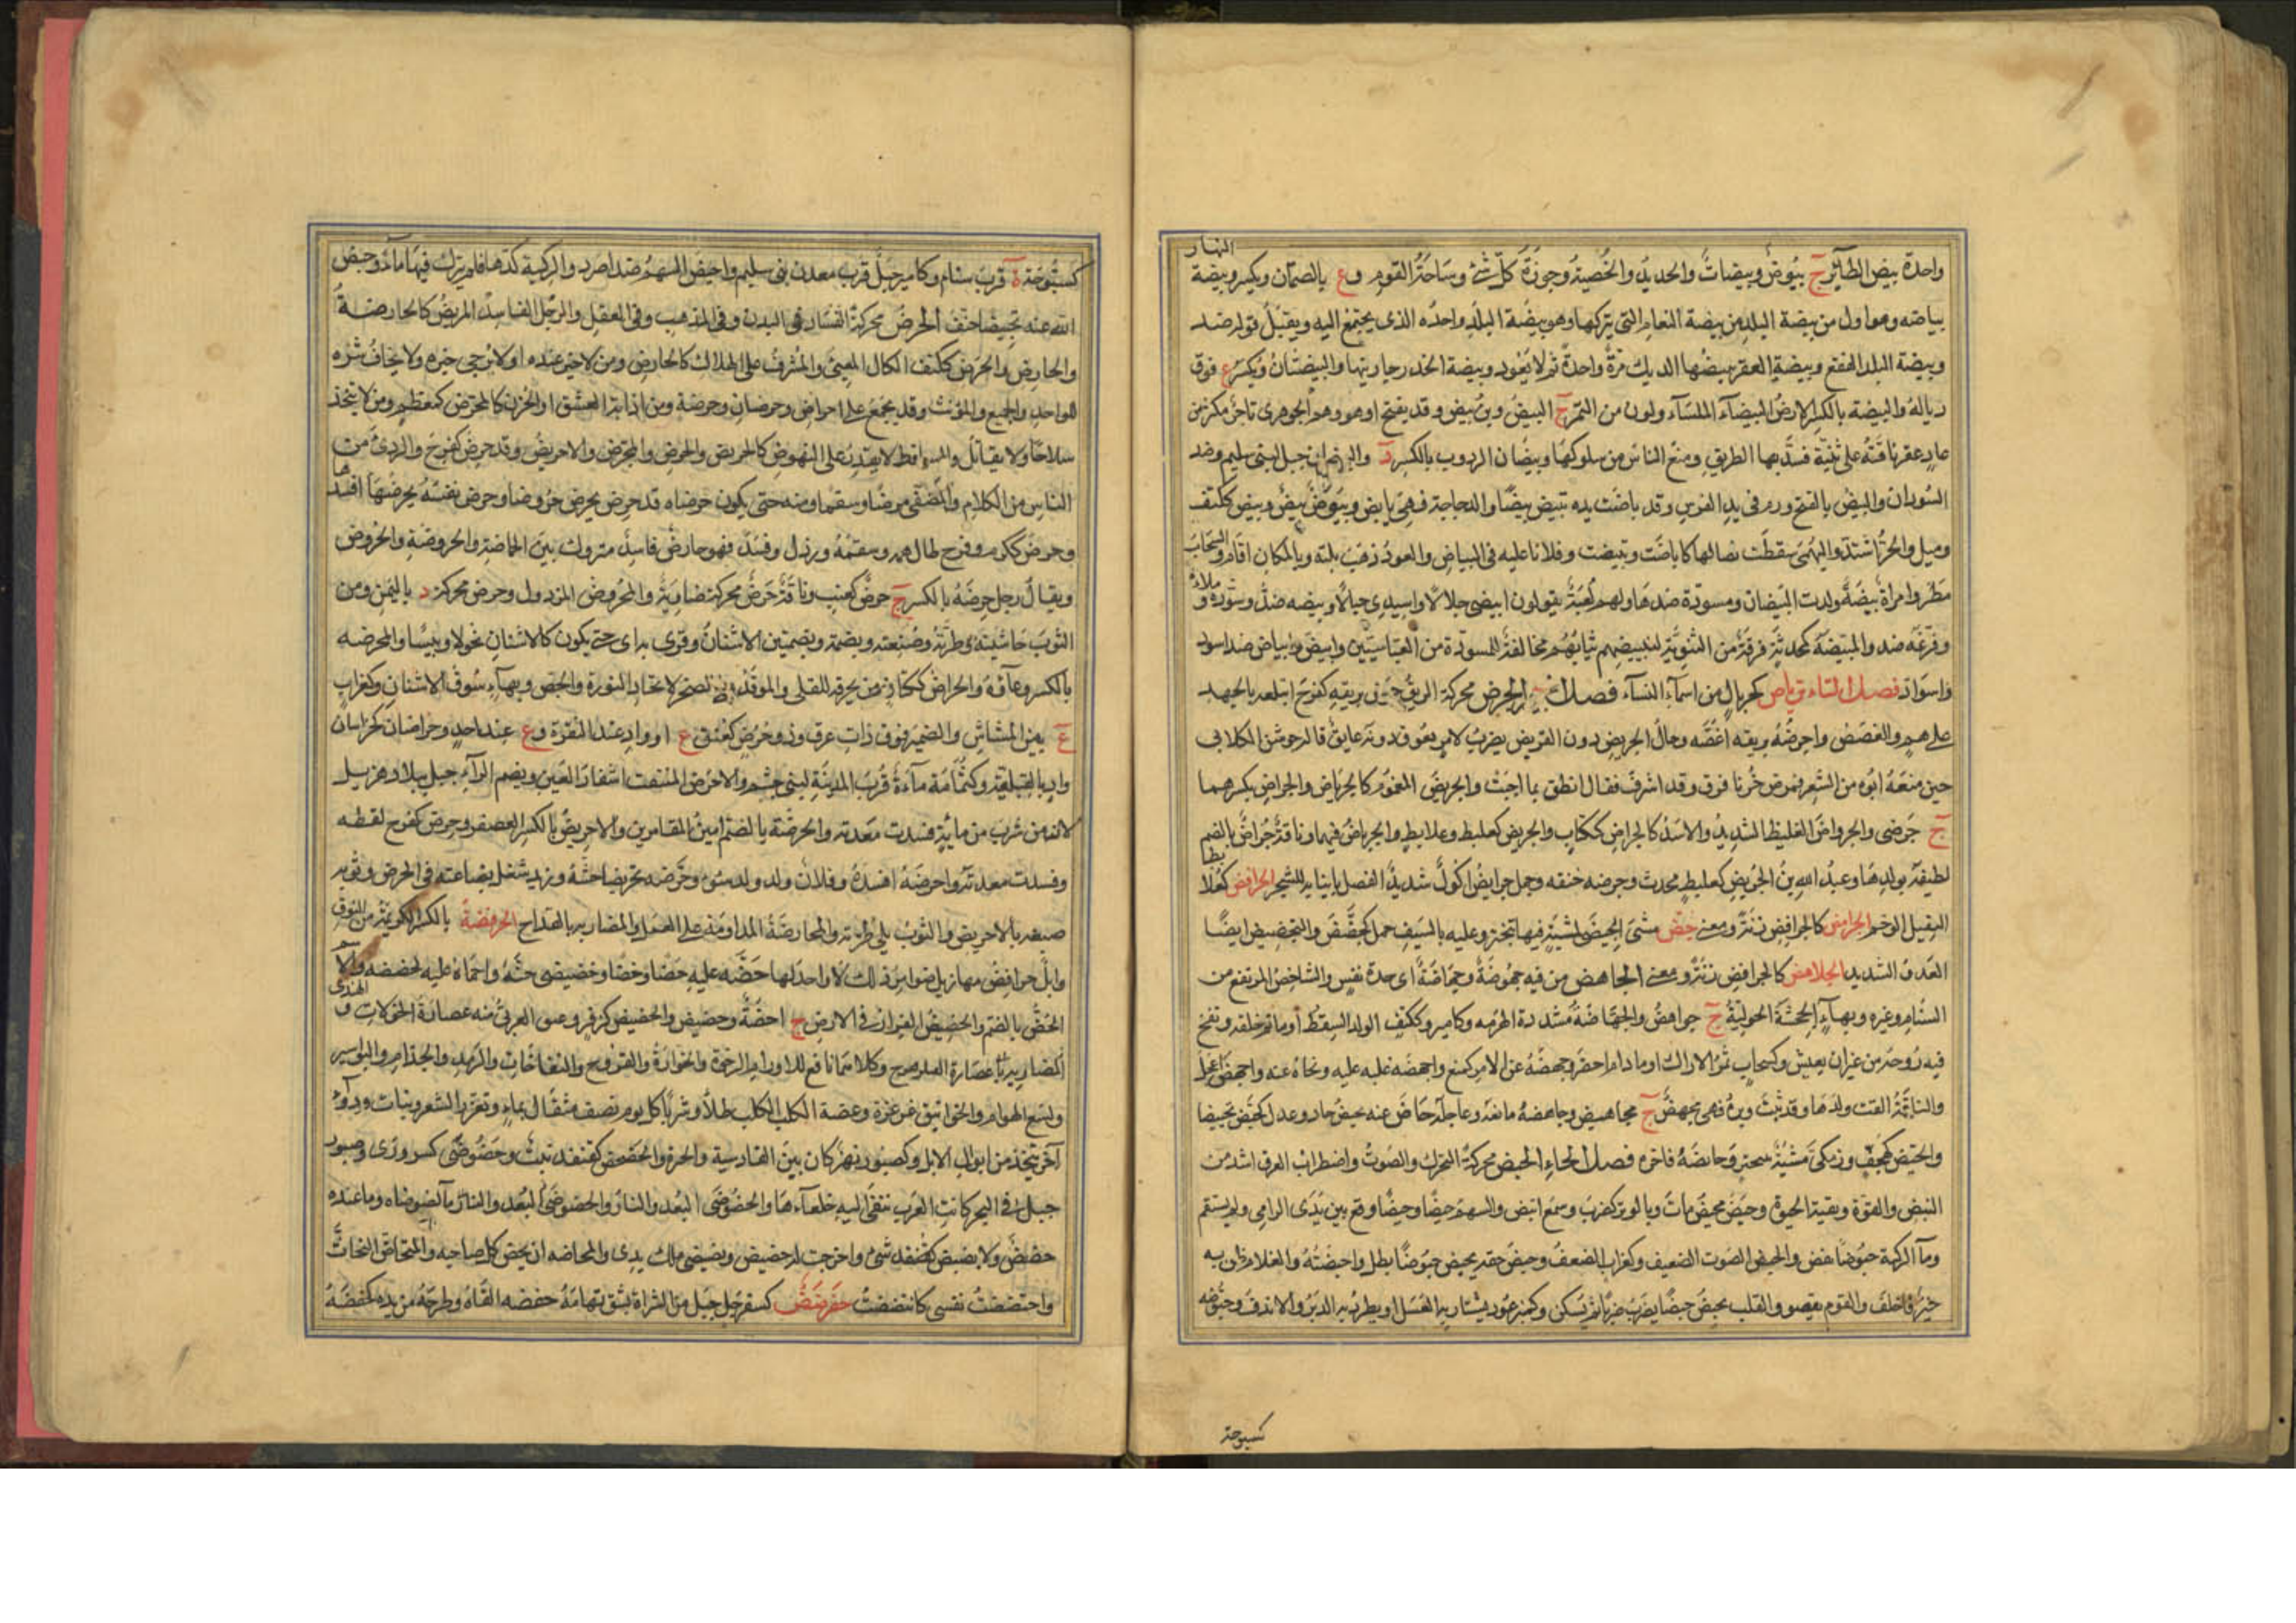 واحدة بيض الطائر ج بيوض وبيضات والحديد والخصية وحوزة كل شئ وساحة القوم و ع بالصمان ويكسر وبيضة النهار
بياضه وهو اول من بيضة البلد من بيضة النعام التى يتركها وهو بيضة البلد واحده الذى يجتمع اليه ويقبل قوله ضد
وبيضة البلد الفقع وبيضة العقر يبيضها الديك مرة واحدة ثم لا يعود وبيضة الخدر جاريتها والبيضتان ويكسر ع فوق
زبالة والبيضة بالكسر الارض البيضآء الملسآء ولون من التمر ج البيض وبن بيض وقد يفتح او هو وهم الجوهرى تاجر مكثر من
عاد عقر ناقته على ثنية فسد بها الطريق ومنع الناس من سلوكها وبيضان الزروب بالكسر د والبيضان جبل لبنى سليم وضد
السودان والبيض بالفتح ورم فى يد الفرس وقد باضت يده تبيض بيضا والدجاجة فهى بايض وبيوض ج بيض وبيض ككتف
وميل والحر اشتد والبهمى سقطت نصالها كاباضت وبيضت وفلانا عليه فى البياض والعود ذهب بلته وبالمكان اقام والسحاب
مطر وامراة بيضة ولدت البيضان ومسودة ضدها ولهم لعبة يقولون ابيضى حبالا واسيدى حبالا وبيضه ضد سوده وملاه
وفرغه ضد والمبيضة كمحدثة فرقة من الثنوية لتبييضهم ثيابهم مخالفة للمسودة من العباسيين وابيض وابياض ضد اسود
واسواد فصل التاء ترياض كجريال من اسمآء النسآء فصل الجيم الجرض محركة الريق جرض بريقه كفرح ابتلعه بالجهد
على هم والغصص واجرضه بريقه اغصه وحال الجريض دون القريض يضرب لامر يعوق دونه عايق قاله جوشن الكلابى
حين منعه ابوه من الشعر فمرض حزنا فرق وقد اشرف فقال انطق بما احببت والجريض المغموم كالجرياض والجراض بكسرهما
ج جرضى والجرواض الغليظ الشديد والاسد كالجراض ككتاب والجرئض كعلبط وعلابط والجرياض فيهما وناقة جراض بالضم
لطيفة بولدها وعبد الله بن الجريض كعلبط محدث وجرضه خنقه وجمل جرايض اكول شديد الفصل بانيابه للشجر الجرافض كعلابط
الثقيل الوخم الجرامض كالجرافض زنة ومعنى جض مشى الجيضى لمشية فيها تبختر وعليه بالسيف حمل كجضض والتجضيض ايضا
العدو الشديد الجلاهض كالجرافض زنة ومعنى الجاهض من فيه جهوضة وجهاضة اى حدة نفس والشاخص المرتفع من
السنام وغيره وبهآء الجحشة الحولية ج جواهض والجهاضة مشددة الهرمه وكامير وككتف الولد السقط او ما تم خلقه ونفخ
فيه روحه من غير ان يعيش وكسحاب ثمر الاراك او ما دام اخضر وجهضه عن الامر كمنع واجهضه غلبه عليه ونحاه عنه واجهض اعجل
والناقة القت ولدها وقد نبت وبره فهى مجهض ج مجاهيض وجاهضه مانعه وعاجله جاض عنه يجيض حاد وعدل كجيض تجييضا
والجيض كهجف وزمكى مشية بتبختر وجايضه فاخره فصل الحاء الحبض محركة التحرك والصوت واضطراب العرق اشد من
النبض والقوة وبقية الحيوة وحبض يحبض مات وبالوتر كضرب وسمع انبض والسهم حبضا وحبضا وقع بين يدى الرامى ولم يستقم
ومآ الركية حبوضا نقص والحبض الصوت الضعيف وكغراب الضعف وحبض حقه يحبض حبوضا بطل واحبضته والغلام ظن به
خير فاخلف والقوم نقصو والقلب يحبض حبضا يضرب ضربا ثم يسكن وكمنبر عود يشتار به العسل او يطرد به الدبر والاندف وحبوضه
كسبوحة
كسبوحة ة قرب شبام وكامير جبل قرب معدن بنى سليم واحبض السهم ضد اصرد والركية كدها فلم يترك فيها مآء وحبض
الله عنه تحبيضا خفف الحرض محركة الفساد فى البدن وفى المذهب وفى العقل والرجل الفاسد المريض كالحارضة
والحارض والحرض ككتف الكال المعيى والمشرف على الهلاك كالحارض ومن لا خير عنده او لا يرجى خيره ولا يخاف شره
للواحد والجميع والمؤنث وقد يجمع على احراض وحرضان وحرضة ومن اذابه العشق او الحزن كالمحرض كمعظم ومن لا يتخذ
سلاحا ولا يقاتل والساقط لا يقدر على النهوض كالحريض والحرض والمحرض والاحريض وقد حرض كفرح والردئ من
الناس من الكلام والمضنى مرضا وسقما ومنه حتى يكون حرضا وقد حرض يحرض حروضا وحرض نفسه يحرضها افسدها
وحرض ككرم وفرح طال همه وسقمه ورذل وفسد فهو حارض فاسد متروك بين الحارضة والحروضة والحروض
ويقال رجل حرضة بالكسر ج حرض كعنب وناقة حرض محركة ضاوية والمحروض المرذول وحرض محركة د باليمن ومن
الثوب حاشيته وطرته وصنفته وبضمة وبضمتين الاشنان وقرى به اى حتى يكون كالاشنان نحولا ويبسا والمحرضه
بالكسر وعآؤه والحراض ككتان من يحرقه للقلى والموقد على الصخر لاتخاذ النورة والجص وبهآء سوق الاشنان وكغراب
ع بين المشاش والغمير فوق ذات عرق وذو حرض كعنق ع او واد عند النقرة و ع عند احد وحراضان كخراسان
واد بالقبلية وكثمامة مآءة قرب المدينة لبنى جشم والاحرض المتفتت اشفار العين وبضم الرآء جبل ببلاد هذيل
لانه من شرب من مائه فسدت معدته والحرضة بالضم امين المقامرين والاحريض بالكسر العصفر وحرض كفرح لقطه
وفسدت معدته واحرضه افسده وفلان ولد ولد سوء وحرضه تحريضا حثه وزيد شغل بضاعته فى الحرض وثوبه
صبغه بالاحريض والثوب بلى طرته والمحارضة المداومة على العمل والمضاربه بالقداح الحرفضة بالكسر الكريمة من النوق
وابل حرافض مهازيل ضوامر لا واحد لها حضه عليه حضا وحضا وحضيضى حثه واحماه عليه كحضضه والاسم
الحض بالضم والحضيض القرار فى الارض ج احضة وحضيض والحضض كزفر وعنق العربى منه عصارة الخولان والهندى
عصارة الفيلزهرج وكلاهما نافع للاورام الرخوة والخوارة والقروح والنفاخات والرمد والجذام والبواسير
ولسع الهوام والخوانيق غرغرة وعضة الكلب الكلب طلآ وشربا كل يوم نصف مثقال بمآء وتغزر الشعر ونبات ودوآء
آخر يتخذ من ابوال الابل وكصبور نهر كان بين القادسية والحيرة والحضحض كقنفذ نبت وحضوضى كشرورى وصبور
جبل فى البحر كانت العرب تنفى اليه خلعآءها والحضوضى البعد والنار والحضوضى البعد والنار وما عنده
حضض ولا بضض كقنفذ شئ واخرجت له حضيضى وبضيضى ملك يدى والمحاضه ان يحض كل صاحبه والتحاض التحاث
واحتضضت نفسى كابتضضت حفرضض كسفرجل جبل من السراة بشق تهامة حفضه القاه وطرحه من يده كحفضه